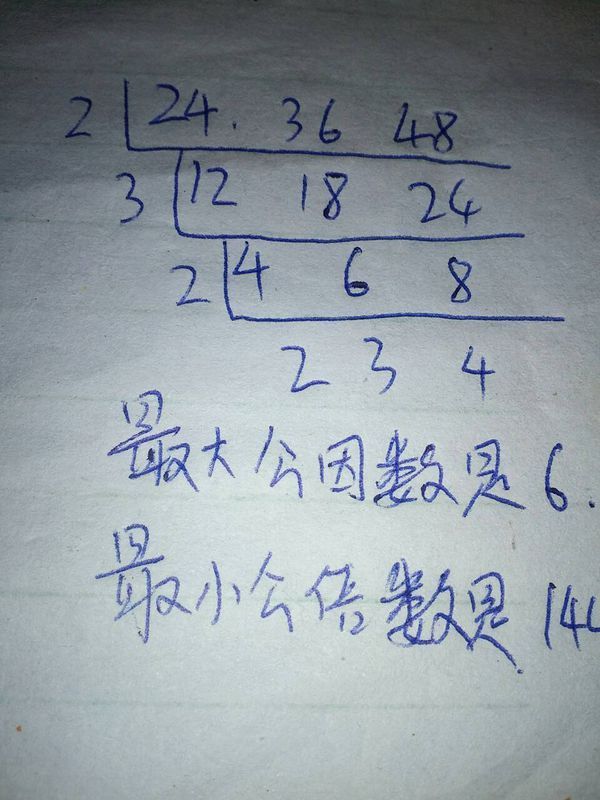 2 24. 36 48
3 12 18 24
2 4 6 8
2 3 4
最大公因数是6.
最小公倍数是